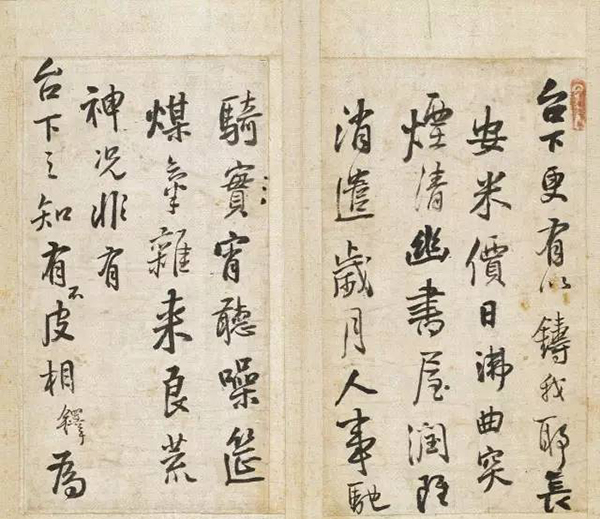 台下更有以鑄我耶長
安米價日沸曲突
煙清幽書屋潤
消遣歲月人事馳
騎實宵聽噪筵
煤氣雜来良荒
神況非有
台下之知有不皮相鐸為